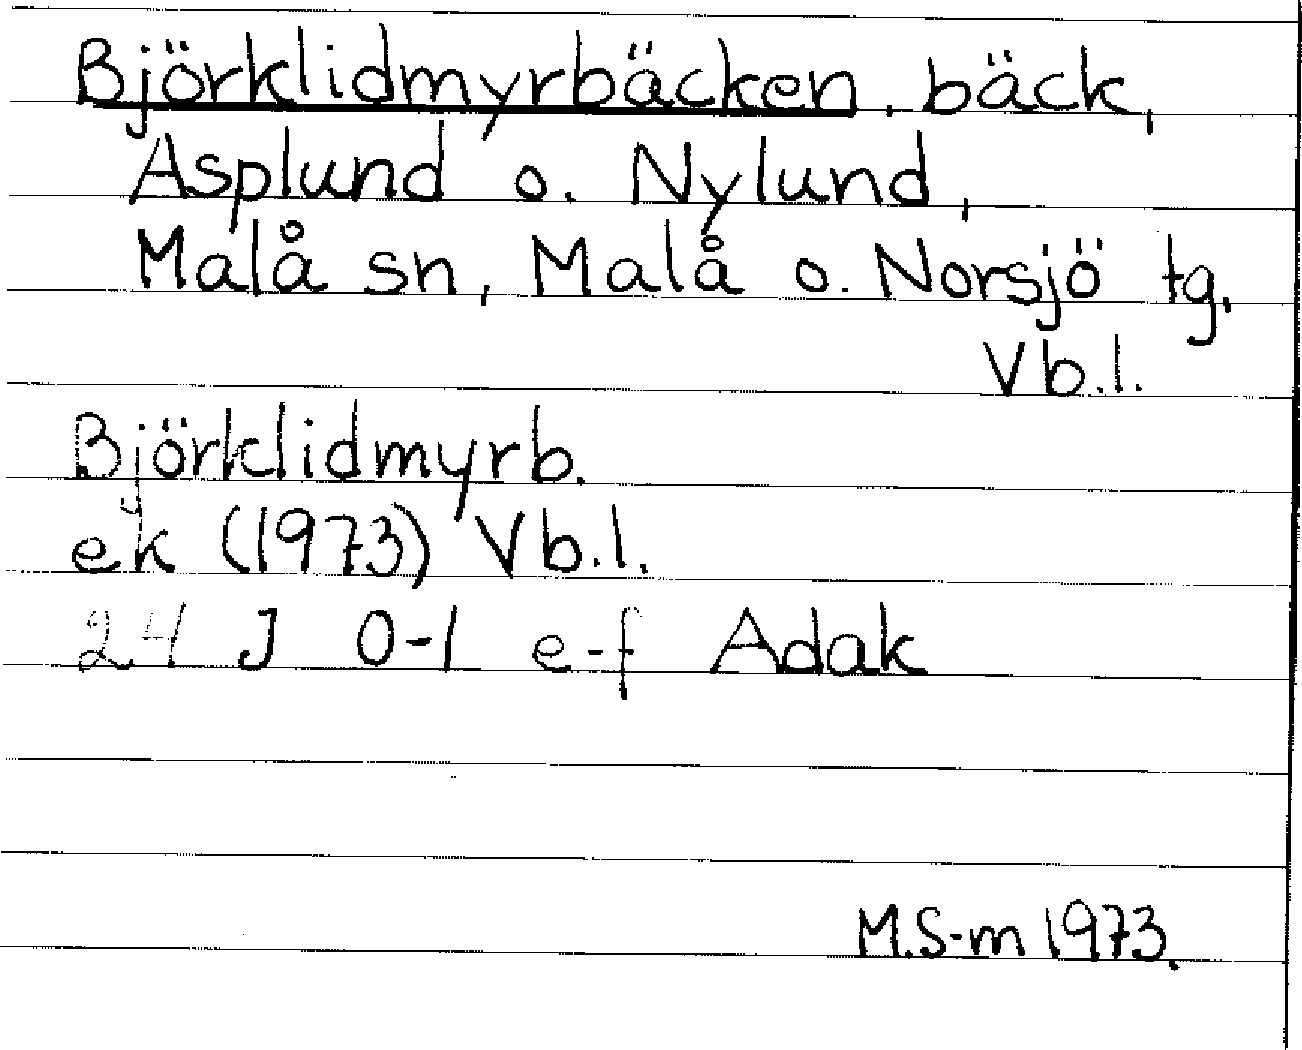 Björklidmyrbäcken, bäck,
Asplund o. Nylund,
Malå sn, Malå o. Norsjö tg,
Vb.l.
Björklidmyrb.
ek (1973) Vb.l.
24 J 0-1 e-f Adak
M.S-m 1973.